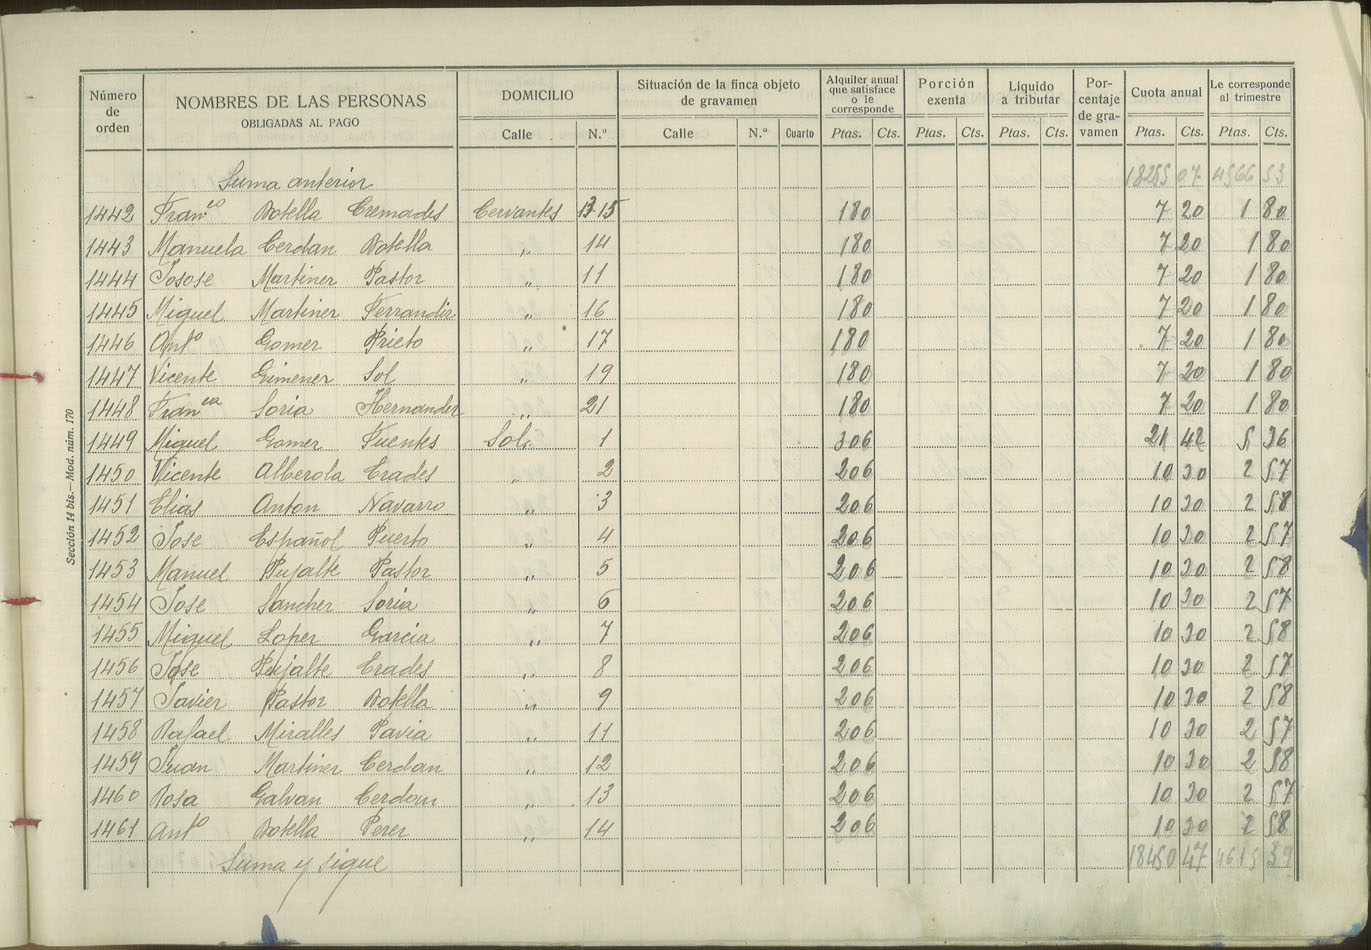 Número de orden NOMBRES DE LAS PERSONAS OBLIGADAS AL PAGO DOMICILIO Situación de la finca objeto de gravamen Alquiler anual que satisface o le corresponde Porción exenta Líquido a tributar Por-centaje de gra-vamen Cuota anual Le corresponde al trimestre
Calle N.º Calle N.º Cuarto Ptas. Cts. Ptas. Cts. Ptas. Cts. Ptas. Cts. Ptas. Cts.
Suma anterior 18255 07 4566 53
1442 Franco Botella Cremades Cervantes 15 180 7 20 1 80
1443 Manuela Cerdan Botella " 14 180 7 20 1 80
1444 Josose Martinez Pastor " 11 180 7 20 1 80
1445 Miguel Martinez Ferrandiz " 16 180 7 20 1 80
1446 Anto Gomez Prieto " 17 180 7 20 1 80
1447 Vicente Gimenez Sol " 19 180 7 20 1 80
1448 Franca Soria Hernandez " 21 180 7 20 1 80
1449 Miguel Gomez Fuentes Sol 1 306 21 42 5 36
1450 Vicente Alberola Erades " 2 206 10 30 2 57
1451 Elias Anton Navarro " 3 206 10 30 2 58
1452 Jose Español Puerto " 4 206 10 30 2 57
1453 Manuel Pujalte Pastor " 5 206 10 30 2 58
1454 Jose Sanchez Soria " 6 206 10 30 2 57
1455 Miguel Lopez Garcia " 7 206 10 30 2 58
1456 Jose Pujalte Erades " 8 206 10 30 2 57
1457 Javier Pastor Botella " 9 206 10 30 2 58
1458 Rafael Miralles Pavia " 11 206 10 30 2 57
1459 Juan Martinez Cerdan " 12 206 10 30 2 58
1460 Rosa Galvan Cerdan " 13 206 10 30 2 57
1461 Anto Botella Perez " 14 206 10 30 2 58
Suma y sigue 18450 47 4615 39
Sección 14 bis.—Mod. núm. 170